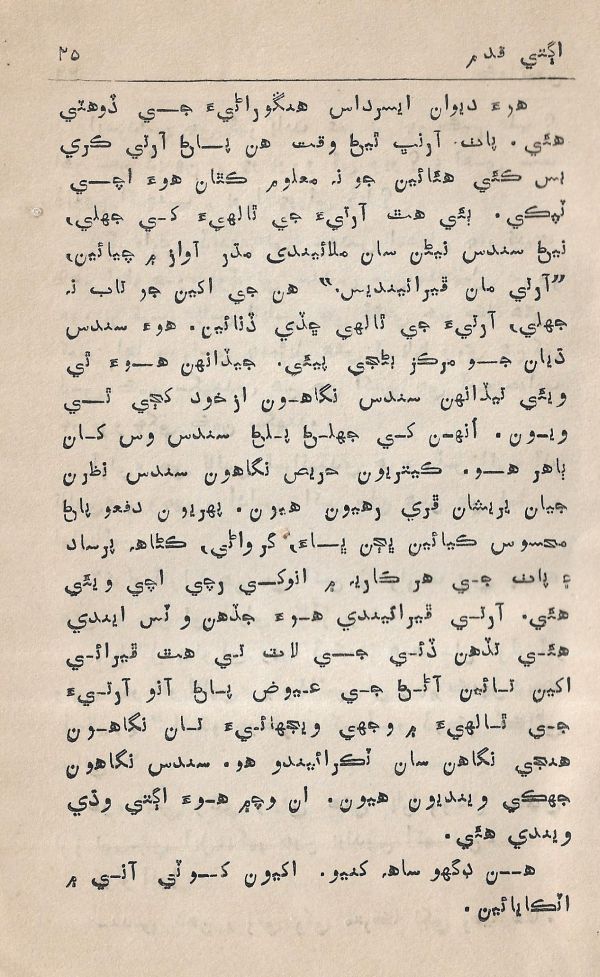 اڳتي قدم ٢٥
هرءِ ديوان ايسرداس هنڱوراڻيءَ جي ڏوهٽي
هئي. پاٺ آرتيب ٿيڻ وقت هن پاڻ آرتي ڪري
بس ڪئي هئائين جو نہ معلوم ڪٿان هوءَ اچي
ٽپڪي. ٻئي هٿ آرتيءَ جي ٿالهيءَ کي جهلي،
نيڻ سندس نيڻن سان ملائيندي مڌر آواز ۾ چيائين،
”آرتي مان ڦيرائينديس.“ هن جي اکين جو تاب نہ
جهلي، آرتيءَ جي ٿالهي ڇڏي ڏنائين. هوءَ سندس
ڌيان جو مرڪز بڻجي پيئي. جيڏانهن هوءَ ٿي
ويئي تيڏانهن سندس نگاهون ازخود کڄي ٿي
ويون. اُنهن کي جهلڻ پلڻ سندس وس کان
ٻاهر هو. ڪيتريون حريص نگاهون سندس نظرن
جيان پريشان ڦري رهيون هيون. پهريون دفعو پاڻ
محسوس ڪيائين ڀڄن ڀاءَ، گرواڻي، ڪڻاهہ پرساد
۽ پاٺ جي هر ڪاريہ ۾ انوکي رچي اچي ويئي
هئي. آرتي ڦيرائيندي هوءَ جڏهن وٽس ايندي
هئي تڏهن ڏئي جي لاٽ تي هٿ ڦيرائي
اکين تائين آڻڻ جي عيوض پاڻ آنو آرتيءَ
جي ٿالهيءَ ۾ وجهي ويجهائيءَ تان نگاهون
هنجي نگاهن سان ٽڪرائيندو هو. سندس نگاهون
جهڪي وينديون هيون. ان وچ۾ هوءَ اڳتي وڌي
ويندي هئي.
هن ڊگهو ساهہ کنيو. اکيون کوٽي آني ۾
اٽڪايائين.